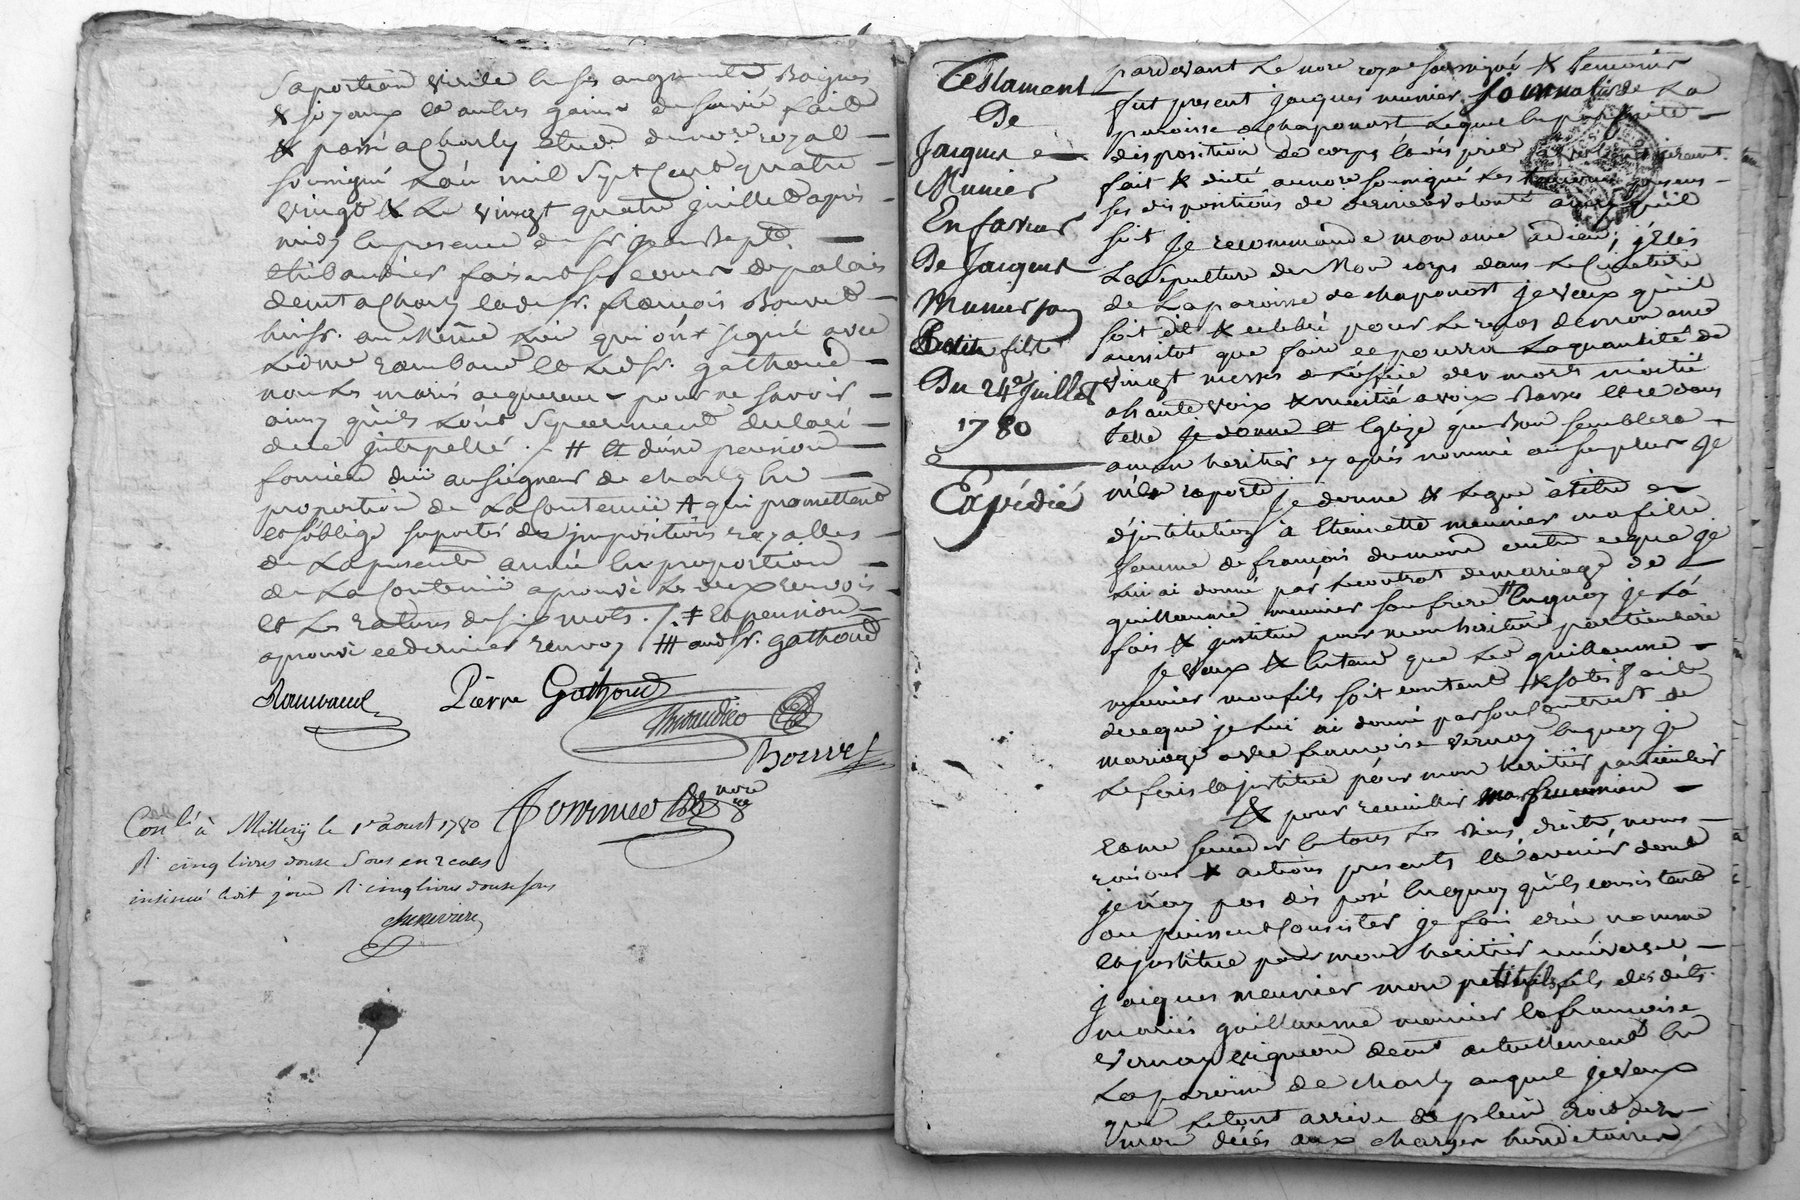 sa portion virile et ses augments Bagues
& joyaux et autres gains de survie fait
& passé a Charly étude du nore royal
soussigné L'an mil sept cent quatre
vingt & Le vingt quatre juillet après
midy en presence de sr. jean Bapte.
thibaudier faisant ses cours de palais
demt a Charly et de sr. francois Bouvet
huissr. au même lieu qui ont signé avec
Led. me et Led. sr. gathoud
non Les mariés acquereurs pour ne savoir
ainsy qu'ils L'ont separement declaré
de ce interpellé . # et d'une pension
fonciere düe au seigneur de charly en
proportion de La contenüe & qui promettent
et s'oblige suporter des impositions royalles
de La presente année en proportion
de La Contenüe aprouvé Les deux renvois
et Les ratures de six mots. /. ‡ et pension
aprouvé ce dernier renvoy ‡‡ aud. sr. gathoud
Pierre Gathoud
Thibaudier
Bouvet
nore
Conlé. à Millery le 1er aoust 1780
R. cinq livres douze sous en 2 cases
insinué ledit jour R. cinq livres douze sous
Testament
De
Jacques
Munier
En faveur
De Jacques
Munier son
Petit fils
Du 24e Juillet
1780
Expédié
pardevant Le nore royal soussigné & temoins
fut present jacques munier journalier de La
paroisse de chaponost Lequel en parfaite
disposition de corps et d'esprit
fait & dicté au nore soussigné Les temoins presens
ses dispositions de derniere volonté ainsy qu'il
suit je recommande mon ame à dieu; j'élis
La sepulture de Mon corps dans Le Cimetiere
de La paroisse de chaponost je veux qu'il
soit dit & celebré pour Le repos de mon ame
aussitot que faire ce pourra La quantité de
vingt messes de L'ofice des morts moitié
a haute voix & moitié a voix Basse et ce dans
telle je donne et Eglize que Bon semblera
a mon heritier cy après nommé au surplus je
m'en raporte je donne & Legue à titre
d'institution à Etiennette meunier ma fille
femme de francois dumond outre ce que je
Lui ai donné par Le contrat de mariage de
guillaume meunier son frere en quoy je La
fais & institue pour mon heritiere particuliere
je veux & entend que Led. guillaume
meunier mon fils soit content & satisfait
de ce que je Lui ai donné par son contract de
mariage avec francoise vernay en quoy je
Le fais et institue pour mon heritier particulier
& pour recueillir ma succession
et me succeder en tous Les Biens, droits, noms
raisons & actions presents et à venir dont
je n'ay pas disposé en quoy qu'ils consistent
ou puissent Consister je fais crée nomme
et institue pour mon heritier universel
jacques meunier mon petit fils fils des dits
mariés guillaume meunier et francoise
vernay vigneron demt actuellement en
La paroisse de charly auquel je veux
que Le tout arrive de plein droit des
mon décès aux charges hereditaires